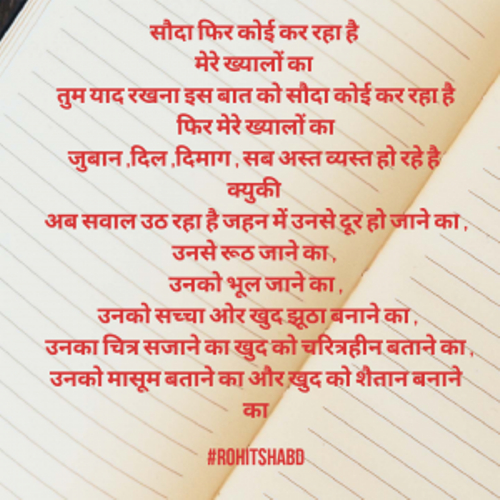 सौदा फिर कोई कर रहा है
मेरे ख्यालों का
तुम याद रखना इस बात को सौदा कोई कर रहा है
फिर मेरे ख्यालों का
जुबान ,दिल ,दिमाग , सब अस्त व्यस्त हो रहे है
क्युकी
अब सवाल उठ रहा है जहन में उनसे दूर हो जाने का ,
उनसे रूठ जाने का ,
उनको भूल जाने का ,
उनको सच्चा ओर खुद झूठा बनाने का ,
उनका चित्र सजाने का खुद को चरित्रहीन बताने का ,
उनको मासूम बताने का और खुद को शैतान बनाने
का
#ROHITSHABD